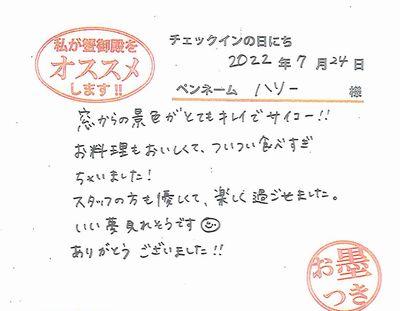 私が蟹御殿を
オススメ
します!!
チェックインの日にち
2022年7月24日
ペンネーム ハソー 様
窓からの景色がとてもキレイでサイコー!!
お料理もおいしくて、ついつい食べすぎ
ちゃいました!
スタッフの方も優しくて、楽しく過ごせました。
いい夢見れそうです☺
ありがとうございました!!
お墨
つき